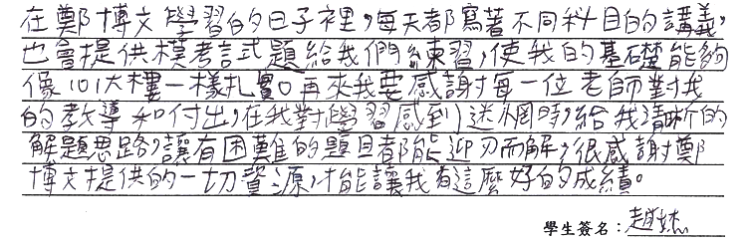 在鄭博文學習的日子裡,每天都寫著不同科目的講義,
也會提供模考試題給我們練習,使我的基礎能夠
像101大樓一樣扎實。再來我要感謝每一位老師對我
的教導和付出,在我對學習感到迷惘時,給我清晰的
解題思路,讓有困難的題目都能迎刃而解,很感謝鄭
博文提供的一切資源,才能讓我有這麼好的成績。
學生簽名:趙